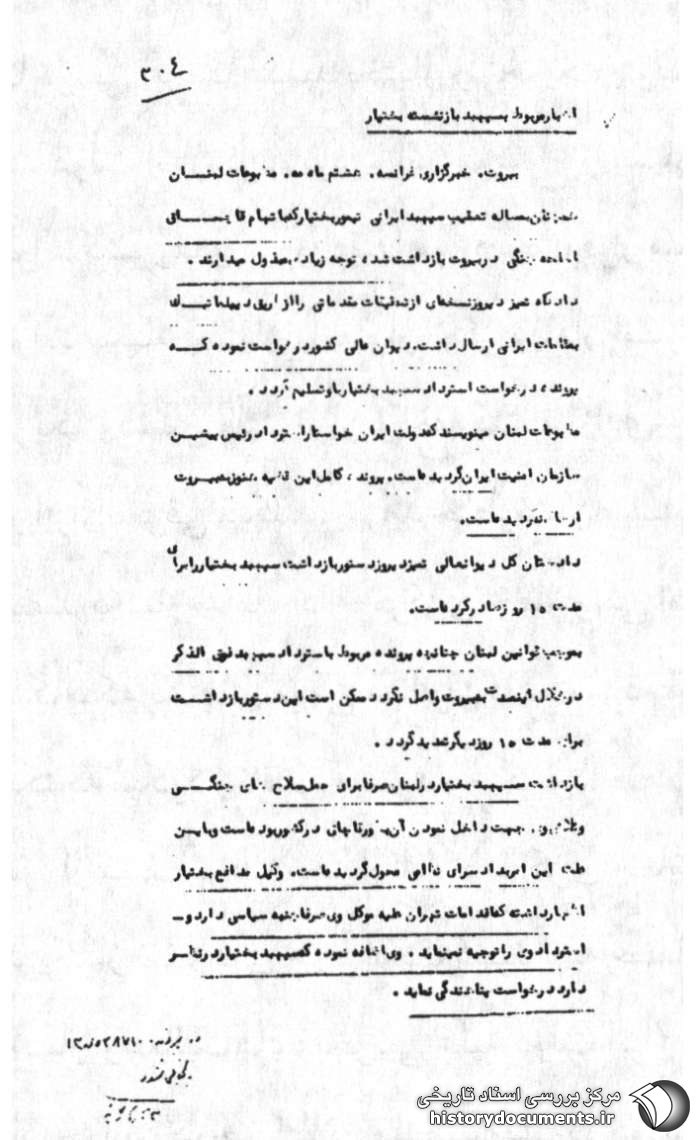 ۳۰۴
اخبار مربوط بسپهبد بازنشسته بختیار
بیروت. خبرگزاری فرانسه. هشتم ماه مه. مطبوعات لبنان
تعقیب سپهبد ایرانی تیمور بختیار که باتهام قاچاق
اسلحه جنگی در بیروت بازداشت شده توجه زیادی مبذول میدارند.
دادگاه تمیز دیروز نسخه‌ای از تحقیقات مقدماتی را از طریق دیپلماتیک
بمقامات ایرانی ارسال داشت. دیوان عالی کشور درخواست نموده که
پرونده درخواست استرداد سپهبد بختیار باو تسلیم گردد.
مطبوعات لبنان مینویسند که دولت ایران خواستار استرداد رئیس پیشین
سازمان امنیت ایران گردیده است. پرونده کامل این قضیه هنوز به بیروت
ارسال نگردیده است.
دادستان کل دیوانعالی تمیز دیروز دستور بازداشت سپهبد بختیار را برای
مدت ۱۵ روز صادر کرده است.
بموجب قوانین لبنان چنانچه پرونده مربوط باسترداد سپهبد فوق الذکر
در خلال این مدت به بیروت واصل نگردد ممکن است این دستور بازداشت
برای مدت ۱۵ روز دیگر تمدید گردد.
بازداشت سپهبد بختیار در لبنان صرفا برای حمل سلاح های جنگی
جهت داخل نمودن آن بطور قاچاق در کشور بوده است و باین
علت این امر بدادسرای نظامی محول گردیده است. وکیل مدافع بختیار
اظهار داشته که اقدامات تهران علیه موکل وی صرفا جنبه سیاسی دارد و -
استرداد وی را توجیه نمینماید. وی اضافه نموده که سپهبد بختیار در نظر
دارد درخواست پناهندگی نماید.
مرکز بررسی اسناد تاریخی
historydocuments.ir